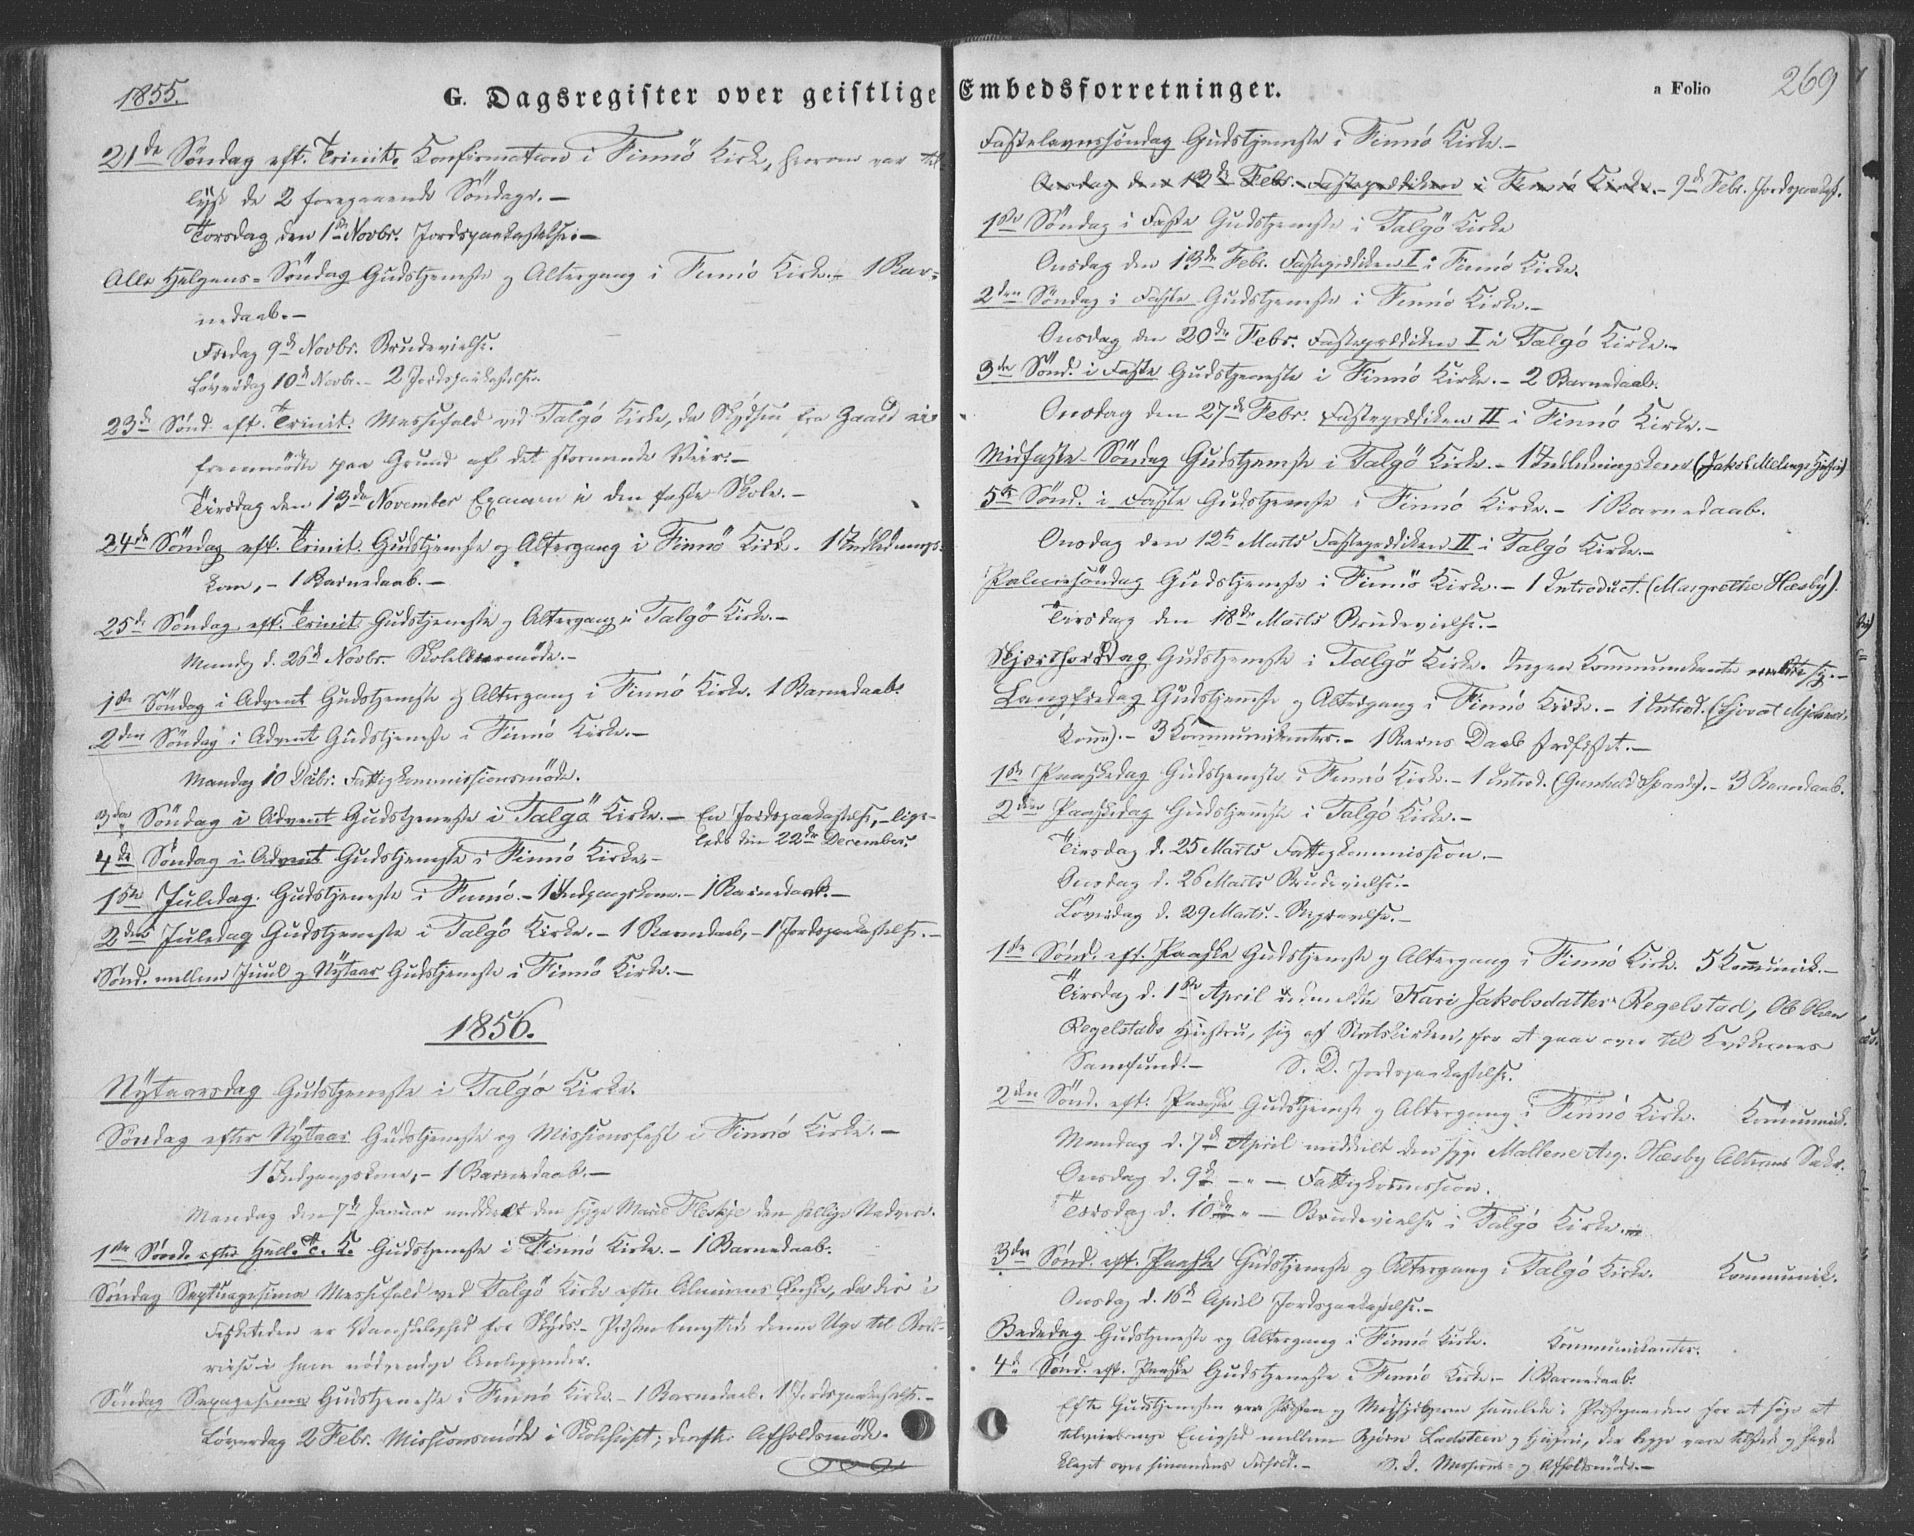 1855.
G. Dagsregister over geistlige
21de Søndag eft. Trinit. Konfirmation i Finnö Kirke, hvorom var til-
lyst de 2 foregaaende Söndage. -
Torsdag den 1ste Novbr. Jordspaakastelse. -
Alle Helgens-Söndag Gudstjeneste og Altergang i Finnö Kirke. - 1 Bar-
nedaab. -
Fredag 9de Novbr. Brudevielse.
Løverdag 10de Novbr. - 2 Jordspaakastelser.
23de Sönd. eft. Trinit. Messefald ved Talgö Kirke, da Skydsen fra Gaard ei
fremmödte paa Grund af det stormende Veir. -
Tirsdag den 13de November Examen i den faste Skole. -
24de Söndag eft. Trinit. Gudstjeneste og Altergang i Finnö Kirke. 1 Indlednings-
kone, - 1 Barnedaab. -
25de Söndag eft. Trinit. Gudstjeneste og Altergang i Talgö Kirke. -
Mandag d. 26de Novbr. Skolelærermöde. -
1ste Söndag i Advent Gudstjeneste og Altergang i Finnö Kirke. 1 Barnedaab.
2den Söndag i Advent Gudstjeneste i Finnö Kirke. -
Mandag 10 Decbr. Fattigkommissionsmöde.
3die Söndag i Advent Gudstjeneste i Talgö Kirke. - En Jordspaakastelse, - lige-
ledes den 22de December.
4de Söndag i Advent Gudstjeneste i Finnö Kirke. -
1ste Juledag. Gudstjeneste i Finnö. - 1 Indgangskone. - 1 Barnedaab. -
2den Juledag Gudstjeneste i Talgö Kirke. - 1 Barnedaab, - 1 Jordspaakastelse. -
Sönd. mellem Juul og Nytaar Gudstjeneste i Finnö Kirke. -
1856.
Nytaarsdag Gudstjeneste i Talgö Kirke.
Söndag efter Nytaar Gudstjeneste og Missionsfest i Finnö Kirke. -
1 Indgangskone, - 1 Barnedaab. -
Mandag den 7de Januar meddelt den syge Marie Fleskje den hellige Nadvere.
1ste Sönd. efter Hell. 3 K. Gudstjeneste i Finnö Kirke. - 1 Barnedaab.
Söndag Septuagesima Messefald ved Talgö Kirke efter Almuens Önske, da der i
Fisketiden er Vanskelighed for Skyds. - Præsten benyttede denne Uge til Bort-
reise i sam nödvendige Anliggender.
Söndag Sexagesima Gudstjeneste i Finnö Kirke - 1 Barnedaab. 1 Jordspaakastelse. -
Løverdag 2 Febr. Missionsmöde i Skolehuset; derefter Afholdsmöde.
Embedsforretninger.
a Folio 269
Fastelavnssöndag Gudstjeneste i Finnö Kirke. -
Onsdag den 13de Febr. Fasteprædiken i Finnö Kirke. - 9de Febr. Jordspaakast.
1ste Söndag i Faste Gudstjeneste i Talgö Kirke
Onsdag den 13de Febr. Fasteprædiken I i Finnö Kirke.
2den Söndag i Faste Gudstjeneste i Finnö Kirke. -
Onsdag den 20de Febr. Fasteprædiken I i Talgö Kirke. -
3de Sönd. i Faste Gudstjeneste i Finnö Kirke. - 2 Barnedaab.
Onsdag den 27de Febr. Fasteprædiken II i Finnö Kirke. -
Midfaste-Söndag Gudstjeneste i Talgö Kirke. - 1 Indledningskone (Jakob Melings Hustru)
5te Sönd. i Faste Gudstjeneste i Finnö Kirke. - 1 Barnedaab.
Onsdag den 12te Marts Fasteprædiken II i Talgö Kirke. -
Palmesöndag Gudstjeneste i Finnö Kirke. - 1 Introduct. (Margrethe Hæsby).
Tirsdag den 18de Marts Brudevielse. -
Skjærthorsdag Gudstjeneste i Talgö Kirke. Ingen Kommunikanter meldte sig. -
Langfredag Gudstjeneste og Altergang i Finnö Kirke. - 1 Introd.
kone). - 3 Kommunikanter. - 1 Barns Daab stadfæstet. -
1ste Paaskedag Gudstjeneste i Finnö Kirke. - 1 Introd. (Gunhild Spande). - 3 Barnedaab.
2den Paaskedag Gudstjeneste i Talgö Kirke. -
Tirsdag d. 25 Marts Fattigkommission. -
Onsdag d. 26 Marts Brudevielse. -
Løverdag d. 29 Marts. -
1ste Sönd. eft. Paaske Gudstjeneste og Altergang i Finnö Kirke. 5 Kommunik. -
Tirsdag d. 1ste April udmeldte Kari Jakobsdatter Regelstad, Ole Olsen
Regelstads Hustru, sig af Statskirken, for at gaae over til Kvækernes
Samfund. - S. D. Jordspaakastelse.
2den Sönd. eft. Paaske Gudstjeneste og Altergang i Finnö Kirke. Kommunik.
Mandag d. 7de April meddelt den syge Mallene Asg. Hæsby Alterens Sakr.
Onsdag d. 9de - " - Fattigkommission.
Torsdag d. 10de " - Brudevielse i Talgö Kirke.
3die Sönd. eft. Paaske Gudstjeneste og Altergang i Talgö Kirke. Kommunik.
Onsdag d. 16de April Jordspaakastelse. -
Bededag Gudstjeneste og Altergang i Finnö Kirke. Kommunikanter.
4de Sönd. eft. Paaske Gudstjeneste i Finnö Kirke. - 1 Barnedaab.
Efter Gudstjenesten vare Præsten og Medhjelperne samlede i Præstegaarden for at söge at
tilveiebringe Enighed mellem Björn Ladsteen og Hustru, der begge vare tilstede og havde
klaget over hinandens Forhold. - S. D. Missions- og Afholdsmöde. -